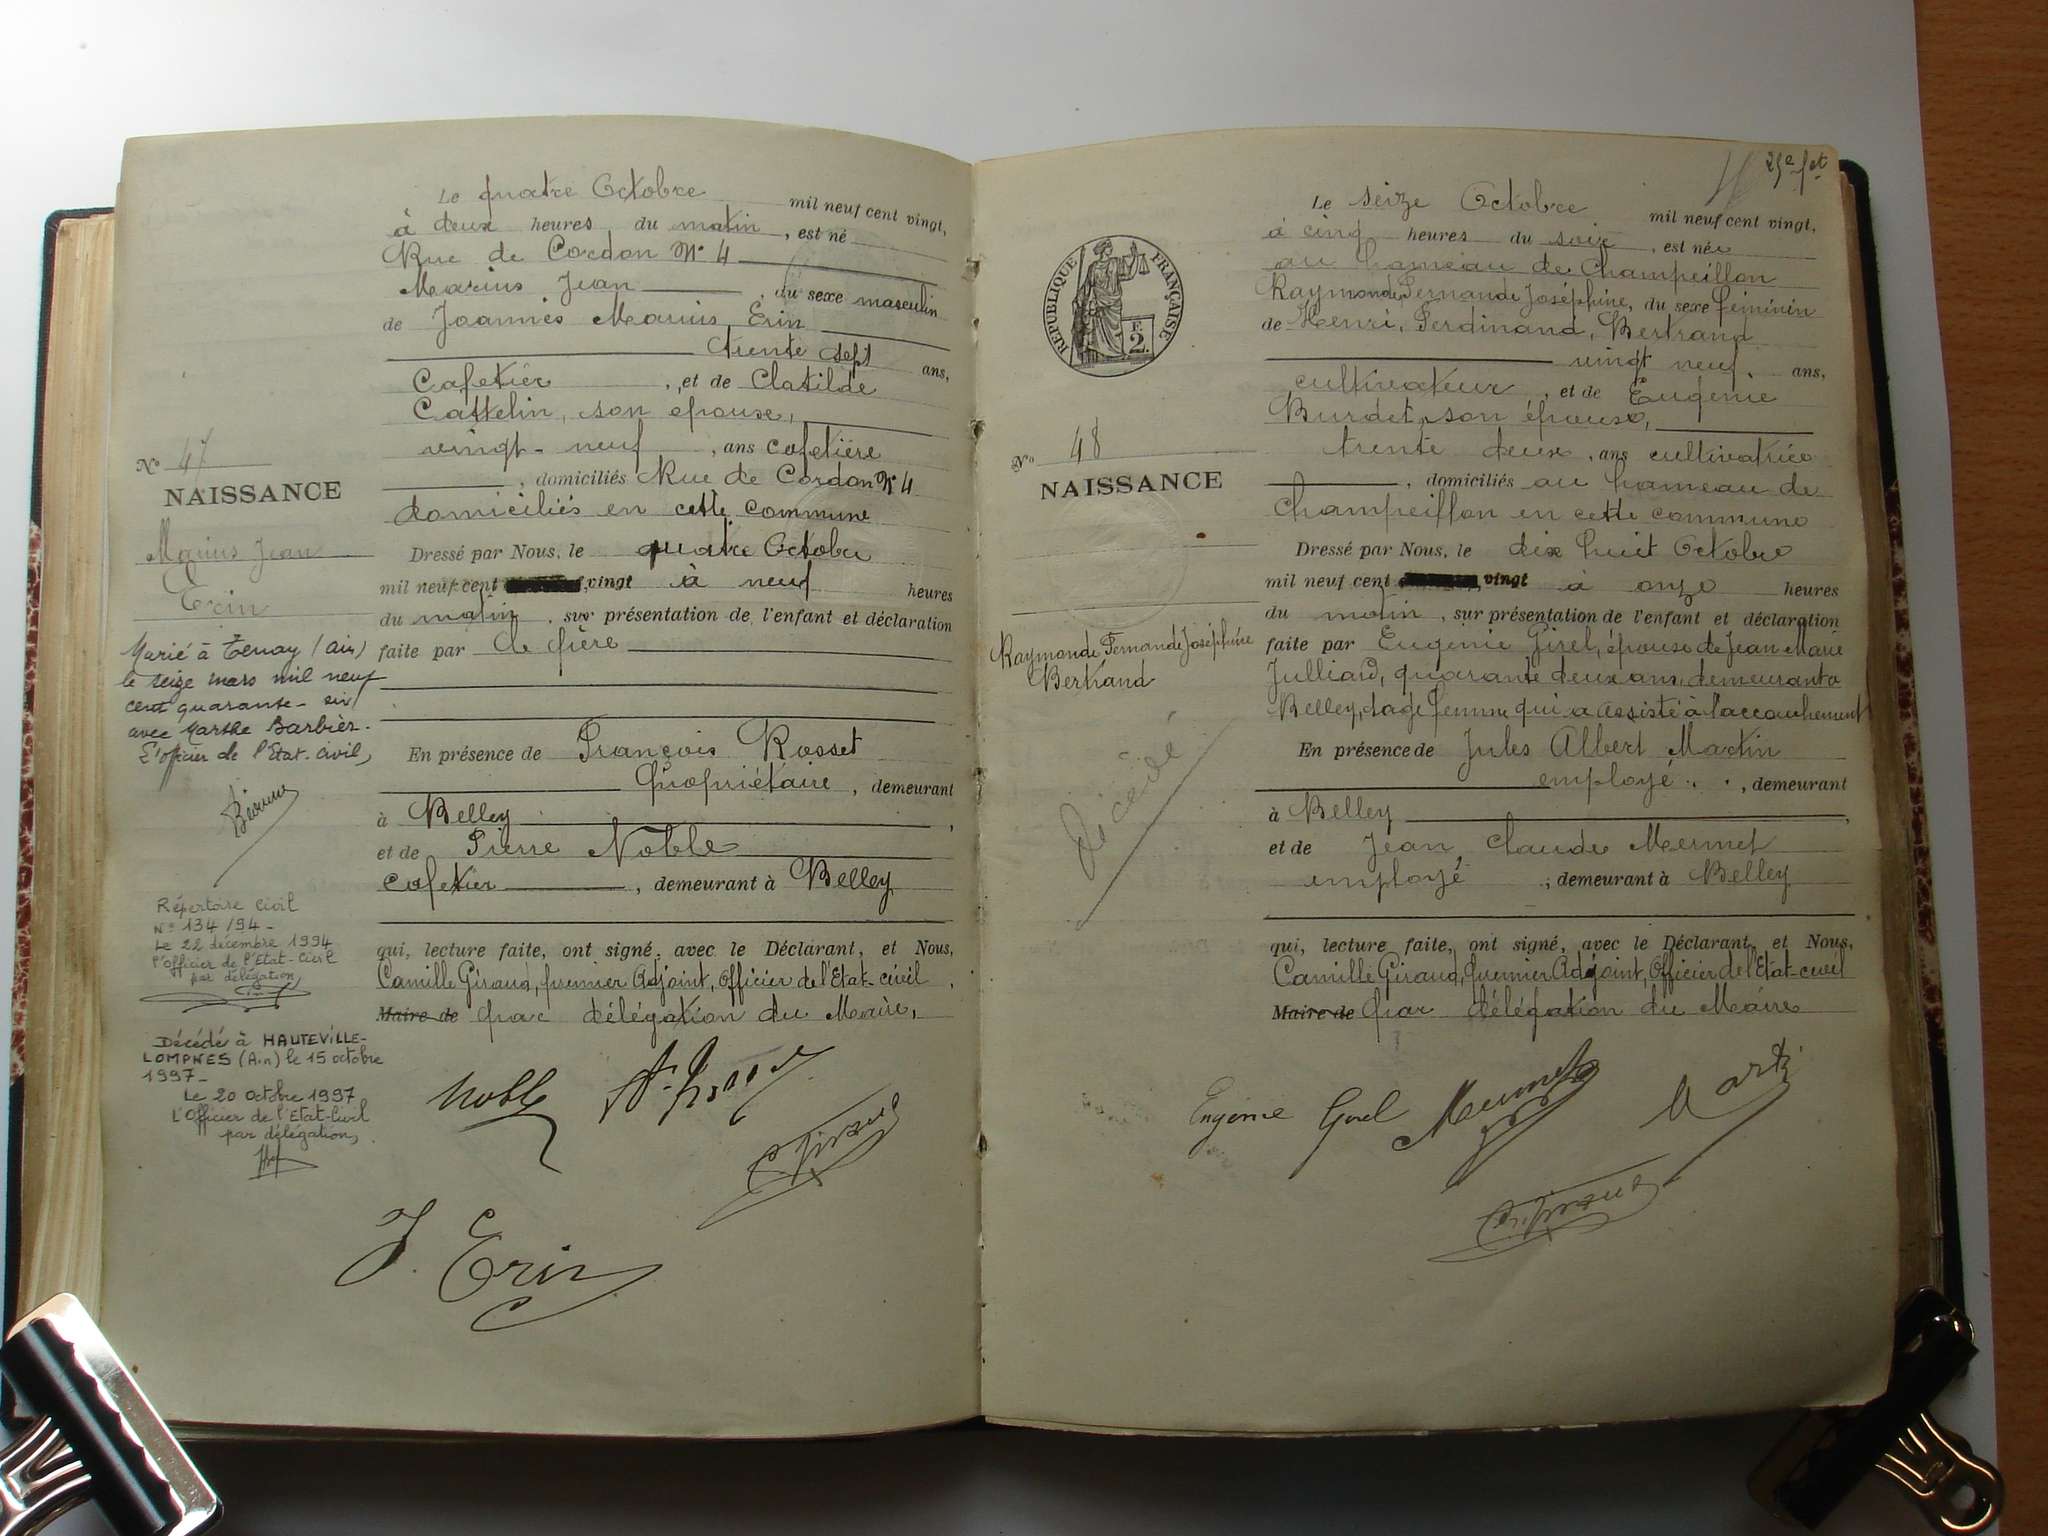 Le quatre Octobre mil neuf cent vingt,
à deux heures du matin, est né
Rue de Cordon N° 4
Marius Jean, du sexe masculin
de Joannès Marius Erin
trente sept ans,
Cafetier, et de Clotilde
Cattelin, son épouse,
vingt-neuf, ans cafetière
, domiciliés Rue de Cordon N° 4
domiciliés en cette commune
Dressé par Nous, le quatre Octobre
mil neuf cent vingt à neuf heures
du matin, sur présentation de l'enfant et déclaration
faite par le père
En présence de François Rosset
Propriétaire, demeurant
à Belley,
et de Pierre Noble
cafetier, demeurant à Belley
qui, lecture faite, ont signé, avec le Déclarant, et Nous,
Camille Giraud, premier Adjoint, Officier de l'Etat-civil,
Maire de par délégation du Maire,
Noble
C. Giraud
J. Erin
N° 47
NAISSANCE
Marius Jean
Erin
Marié à Tenay (Ain)
le seize mars mil neuf
cent quarante-six
avec Marthe Barbier.
L'officier de l'Etat-Civil,
Répertoire Civil
N° 134/94-
Le 22 décembre 1994
l'Officier de l'Etat-Civil
par délégation,
Décédé à HAUTEVILLE-
LOMPNES (Ain) le 15 octobre
1997-
Le 20 octobre 1997
L'Officier de l'Etat-Civil
par délégation,
25e fet
RÉPUBLIQUE FRANÇAISE
F.
2.
Le seize Octobre mil neuf cent vingt,
à cinq heures du soir, est née
au hameau de Champeillon
Raymonde, Fernande Joséphine, du sexe féminin
de Henri, Ferdinand, Bertrand
vingt neuf, ans,
cultivateur, et de Eugénie
Burdet, son épouse,
trente deux, ans cultivatrice
, domiciliés au hameau de
Champeillon en cette commune
Dressé par Nous, le dix huit Octobre
mil neuf cent vingt à onze heures
du matin, sur présentation de l'enfant et déclaration
faite par Eugénie Girel, épouse de Jean Marie
Julliard, quarante deux ans, demeurant à
Belley, sage femme qui a assisté à l'accouchement
En présence de Jules Albert Martin
employé, demeurant
à Belley,
et de Jean Claude Mermet
employé, demeurant à Belley
qui, lecture faite, ont signé, avec le Déclarant, et Nous,
Camille Giraud, premier Adjoint, Officier de l'Etat-civil
Maire de par délégation du Maire
Eugénie Girel Mermet Martin
C. Giraud
N° 48
NAISSANCE
Raymonde Fernande Joséphine
Bertrand
Décédé